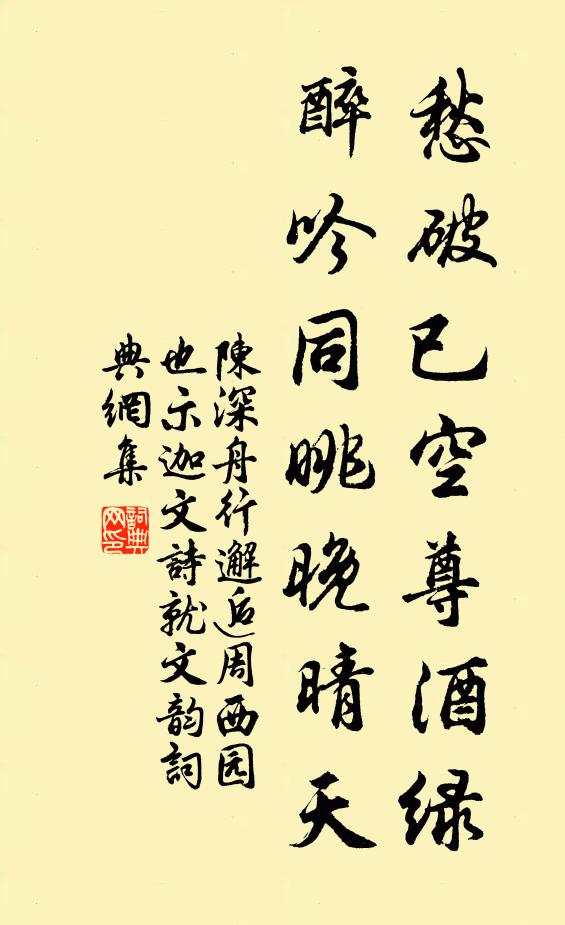 愁破已空尊酒绿
醉吟同眺晚晴天
陳深舟行邂逅周西园
也示迦文詩就文韵詞
典網集
詞典网印